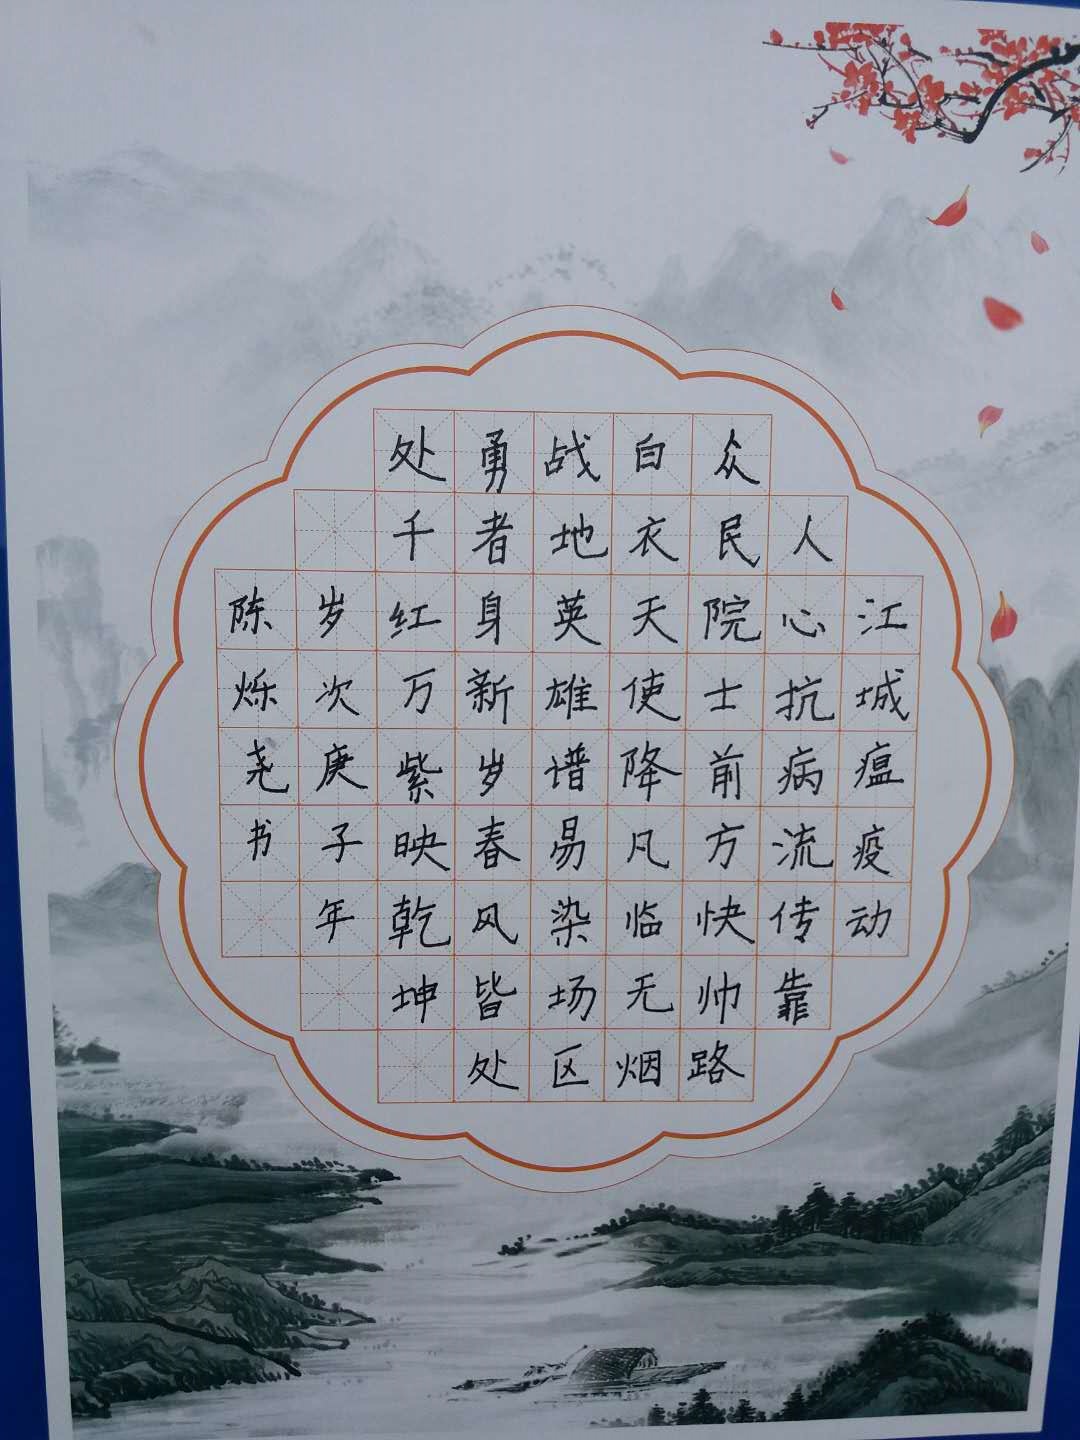 江城瘟疫动
人心抗病流传靠
众民院士前方快帅路
白衣天使降凡临无烟
战地英雄谱易染场区
勇者身新岁春风皆处
处千红万紫映乾坤
岁次庚子年
陈烁尧书